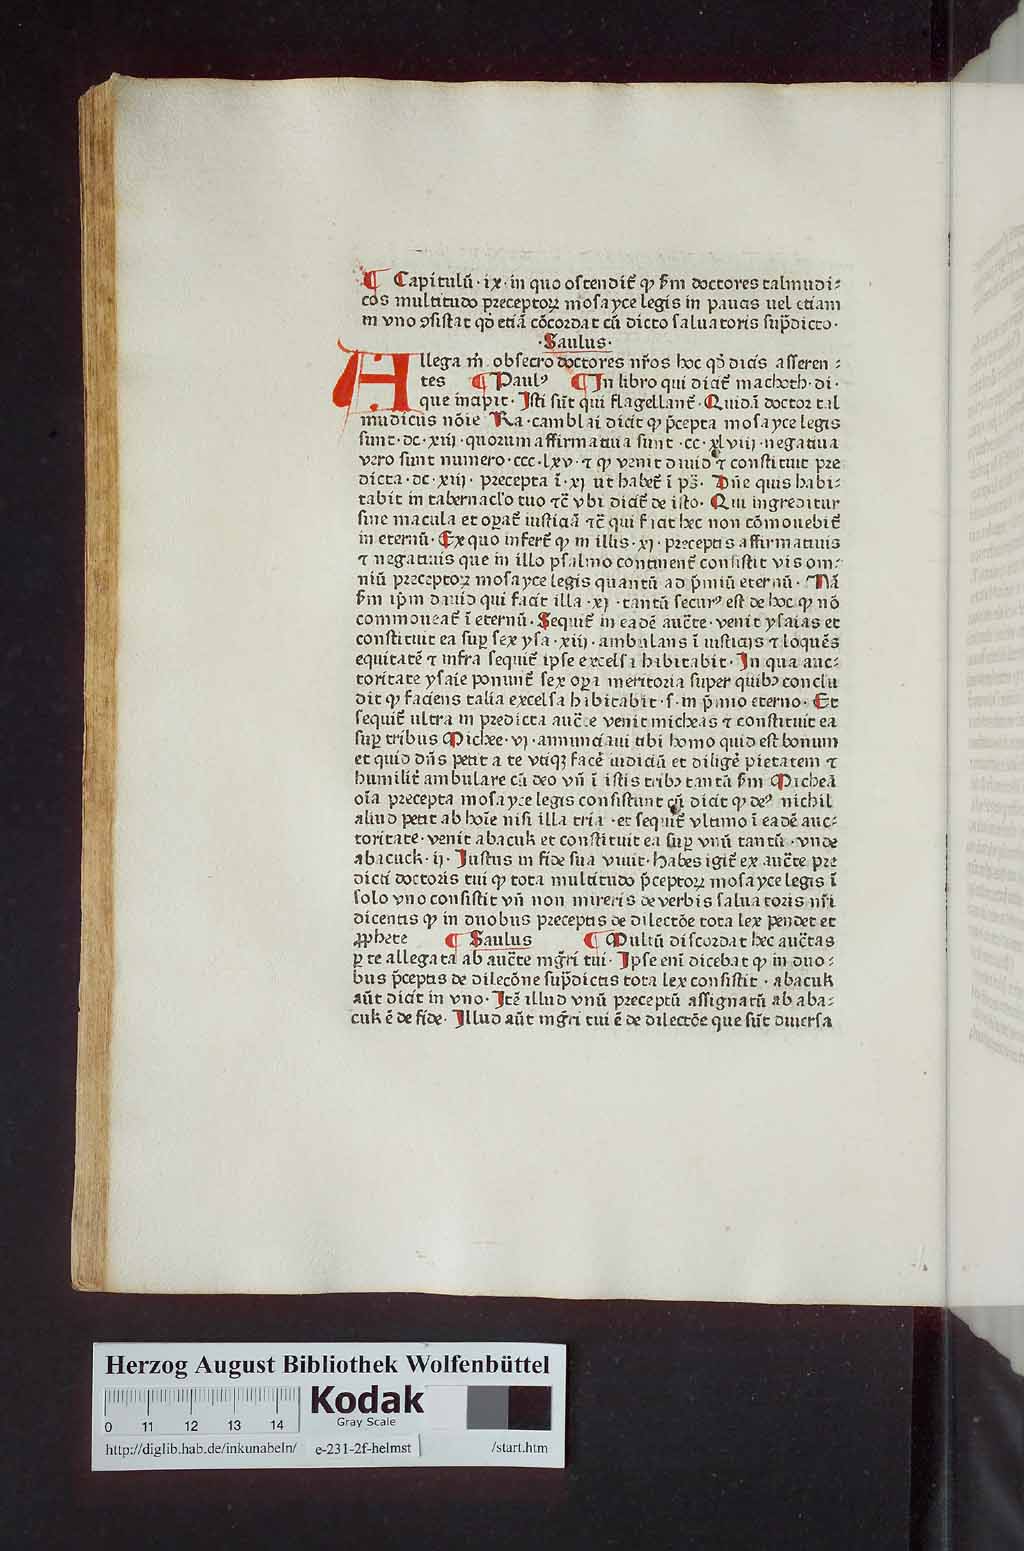 ¶ Capitulū · ix · in quo oſtendit̄ ꝙ ẜm doctores talmudi⸗
cos multitudo preceptoꝝ moſayce legis in paucis uel etiam
in vno ↄſiſtat qđ etiā cōcordat cū dicto ſaluatoris ſup̄dicto ·
· Saulus ·
Allega m̄ obſecro doctores nr̄os hoc qđ dicis aſſeren⸗
tes ¶ Paulꝰ ¶ In libro qui dicit̄ machoth · di ·
que incipit · Iſti ſūt qui flagellant̄ · Quidā doctor tal
mudicus nōie Ra · camblai dicit ꝙ p̄cepta moſayce legis
ſunt · dc · xiij · quorum affirmatiua ſunt · cc · xlviij · negatiua
vero ſunt numero · ccc · lxv · ⁊ ꝙ venit dauid ⁊ conſtituit pre
dicta · dc · xiij · precepta ī · xj ut habet̄ ī pſ̄ · Dn̄e quis habi⸗
tabit in tabernac̄lo tuo ⁊c̄ vbi dicit̄ de iſto · Qui ingreditur
ſine macula et oꝑat̄ iuſticiā ⁊c̄ qui facit hec non cōmouebit̄
in eternū · Ex quo infert̄ ꝙ in illis · xj · preceptis affirmatiuis
⁊ negatiuis que in illo pſalmo continent̄ conſiſtit vis om⸗
niū preceptoꝝ moſayce legis quantū ad p̄miū eternū · Nā
ẜm ip̄m dauid qui facit illa · xj · tantū ſecurꝰ eſt de hoc ꝙ nō
commoueat̄ ī eternū · Sequit̄ in eadē auc̄te · venit yſaias et
conſtituit ea ſuꝑ ſex yſa · xiij · ambulans ī iuſticijs ⁊ loquēs
equitatē ⁊ infra ſequit̄ ipſe excelſa habitabit · In qua auc⸗
toritate yſaie ponunt̄ ſex oꝑa meritoria ſuper quibꝫ conclu
dit ꝙ faciens talia excelſa habitabit · ſ · in p̄mio eterno · Et
ſequit̄ ultra in predicta auc̄te venit micheas ⁊ conſtituit ea
ſuꝑ tribus Michee · vj · annunciaui tibi homo quid eſt bonum
et quid dn̄s petit a te vtiqꝫ facē iudiciū et diligē pietatem ⁊
humilit̄ ambulare cū deo vn̄ ī iſtis tribꝫ tantū ẜm Micheā
oīa precepta moſayce legis conſiſtunt cū dicit ꝙ deꝰ nichil
aliud petit ab hoīe niſi illa tria · et ſequit̄ vltimo ī eadē auc⸗
toritate · venit abacuk et conſtituit ea ſuꝑ vnū tantū · vnde
abacuck · ij · Juſtus in fide ſua viuit · Habes igit̄ ex auc̄te pre
dicti doctoris tui ꝙ tota multitudo p̄ceptoꝝ moſayce legis ī
ſolo vno conſiſtit vn̄ non mireris de verbis ſaluatoris nr̄i
dicentis ꝙ in duobus preceptis de dilectōe tota lex pendet et
ꝓphete ¶ Saulus ¶ Multū diſcordat hec auc̄tas
ꝑ te allegata ab auc̄te mgr̄i tui · Ipſe eni̅ dicebat ꝙ in duo⸗
bus p̄ceptis de dilecōne ſup̄dictis tota lex conſiſtit · abacuk
aūt dicit in vno · Itē illud vnū preceptū aſſignatū ab aba⸗
cuk ē de fide · Illud aūt mgr̄i tui ē de dilectōe que ſūt diuerſa
Herzog August Bibliothek Wolfenbüttel
0 11 12 13 14
Kodak
Gray Scale
http://diglib.hab.de/inkunabeln/ e-231-2f-helmst /start.htm